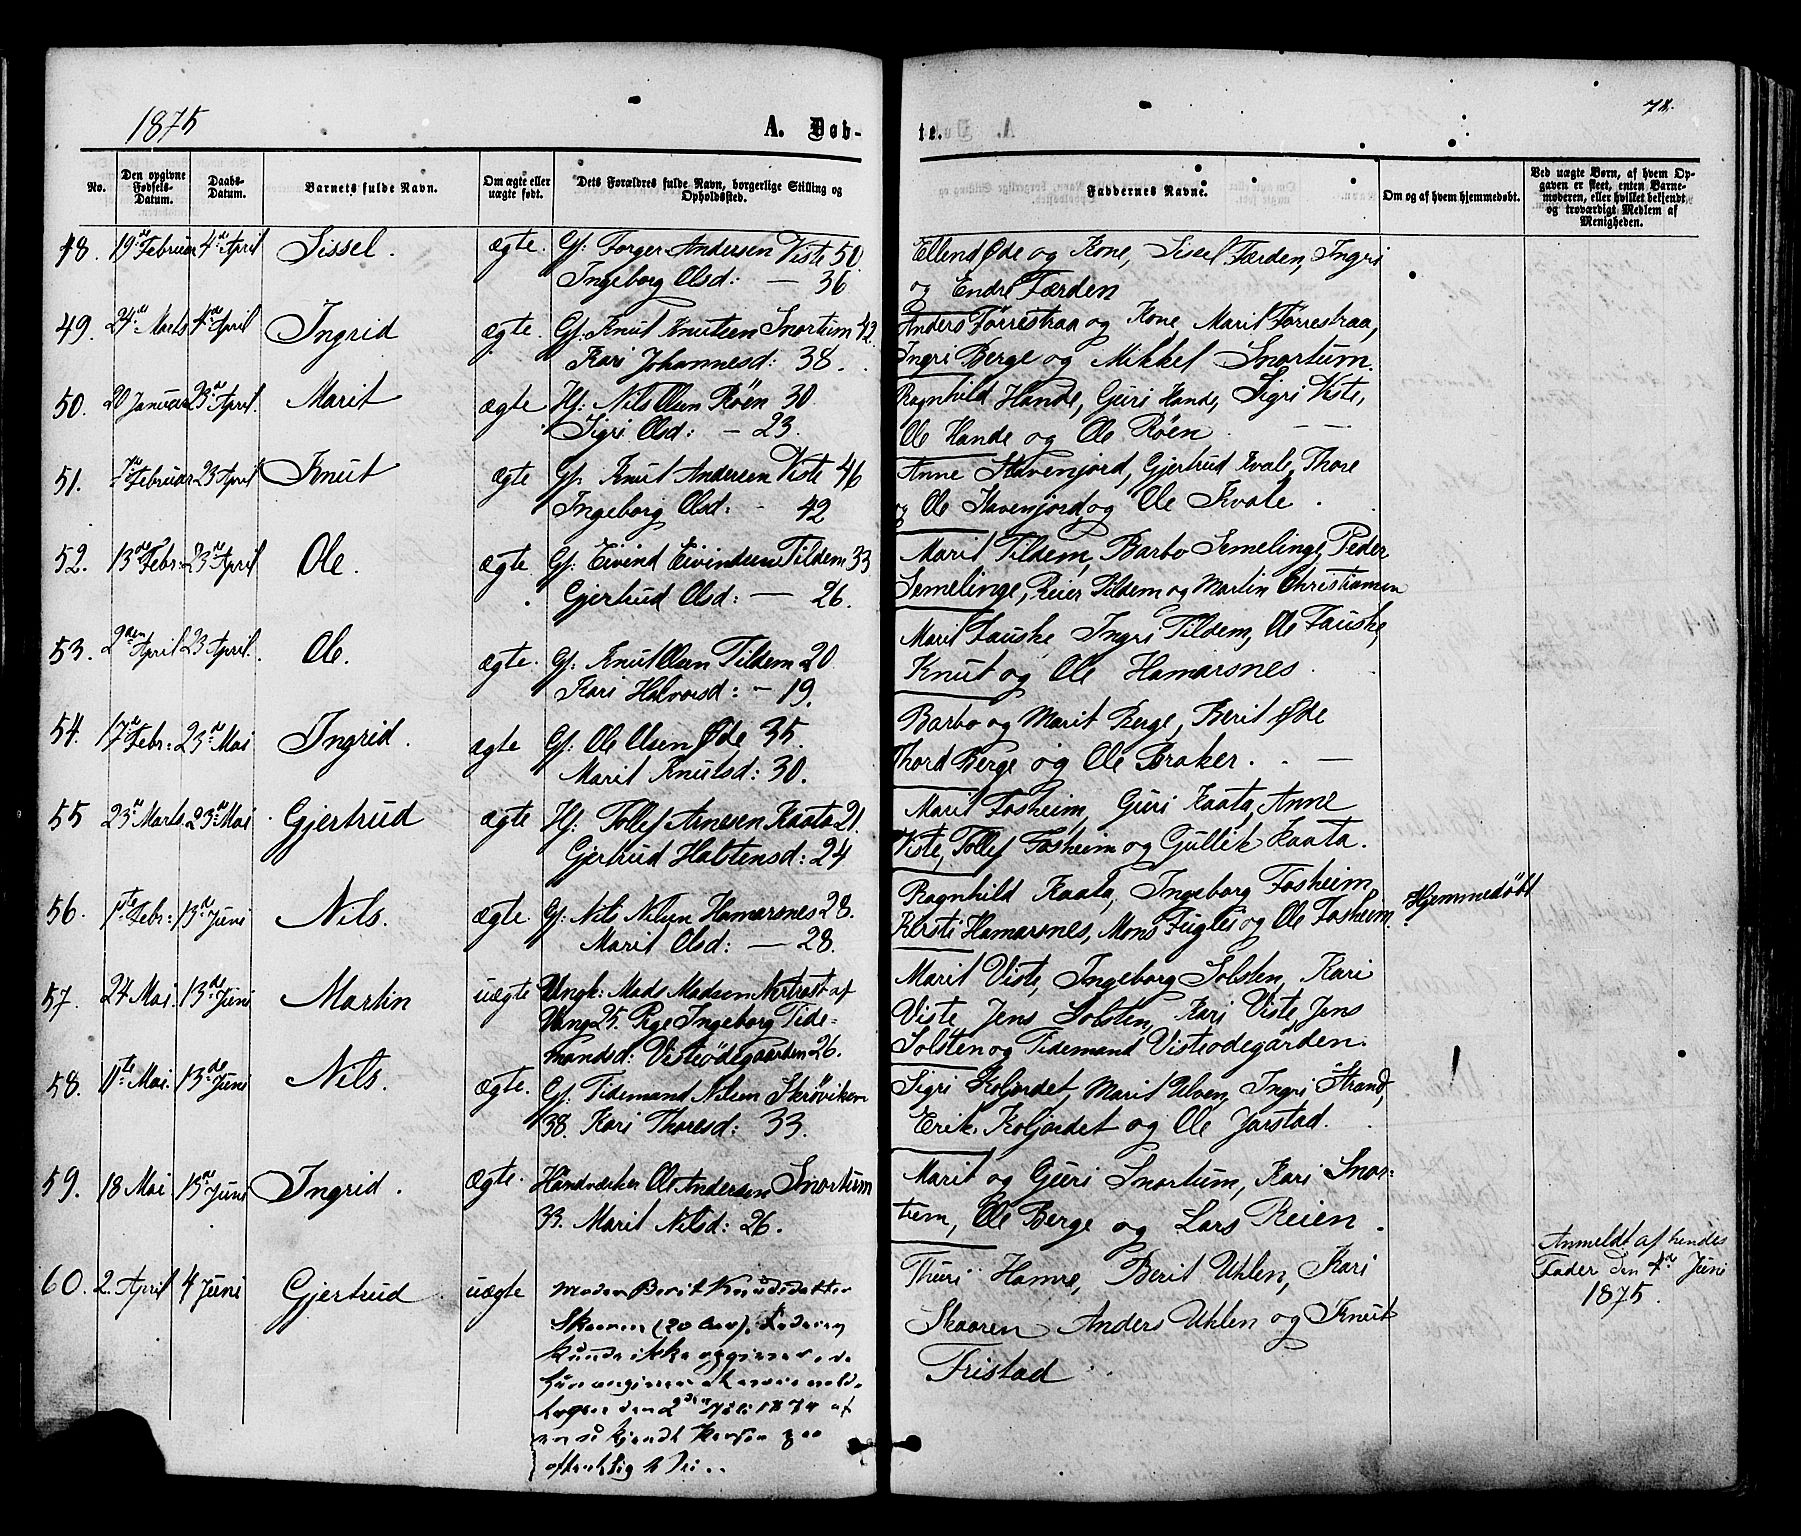 1875
A. Døb-
te.
78.
No.
Den opgivne Fødsels-Datum.
Daabs-Datum.
Barnets fulde Navn.
Om ægte eller uægte født.
Dets Forældres fulde Navn, borgerlige Stilling og Opholdssted.
Faddernes Navne.
Om og af hvem hjemmedøbt.
Ved uægte Børn, af hvem Opgaven er skeet, enten Barnemoderen, eller hvilket bekjendt og troværdigt Medlem af Menigheden.
48. 19de Februar 4de April Sissel. ægte. Gf: Torger Andersen Viste 50.
Ingeborg Olsd: — 36
Ellend Øde og Kone, Sissel Færden, Ingri
og Endre Færden
49. 24de Marts 4de April Ingrid ægte. Gf. Knut Knutsen Snortum 42.
Kari Johannesd: 38.
AndersFørrestraa og Kone, Marit Førrestraa,
Ingri Berge og Mikkel Snortum.
50. 20 Januar 23de April. Marit ægte Hf: Nils Olsen Røen 30
Sigri Olsd: — 23.
Ragnhild Hande, Guri Hande, Sigri Viste,
Ole Hande og Ole Røen.
51. 7de Februar 23 April Knut ægte Gf. Knut Andersen Viste 46
Ingeborg Olsd: - 42
Anne Havenjord, Gjertrud Kvale, Thore
og Ole Havenjord og Ole Kvale.
52. 13de Febr: 23de April Ole. ægte. Gf: Eivind Eivindsen Tildem 33
Gjertrud Olsd: — 26.
Marit Tildem, Barbo Semelinge, Peder
Semelinge, Reier Tildem og Martin Christiansen
53. 2den April 23 April. Ole. ægte. Gf. Knut Olsen Tildem 20
Kari Halvorsd: — 19.
Marit Fauske, Ingri Tildem, Ole Fauske,
Knut og Ole Hamarsnes.
54. 17de Febr: 23de Mai Ingrid. ægte Gf: Ole Olsen Øde 35.
Marit Knutsd: 30.
Barbo og Marit Berge, Berit Øde
Thord Berge og Ole Braker.
55 23de Marts 23de Mai Gjertrud ægte Hf: Tollef Arnesen Kaata 21.
Gjertrud Halstensd: 24
Marit Fosheim, Guri Kaata, Anne
Viste, Tollef Fosheim og Gullik Kaata.
56. 1ste Febr: 13de Juni Nils. ægte Gf: Nils Nilsen Hamarsnes 28.
Marit Olsd: — 28.
Ragnhild Kaata, Ingeborg Fosheim
Kersti Hamarsnes, Mons Fuglei og Ole Fosheim.
Hjemmedøbt
57. 24 Mai. 13de Juni Martin uægte Ungk: Mads Madsen Nertrost af
Vang 25. Pige Ingeborg Tide-
mandsd: Visteødegaarden 26.
Marit Viste, Ingeborg Solsten, Kari
Viste Jens Solsten, Kari Viste, Jens
Solsten og Tidemand Visteodegården.
58. 11te Mai. 13de Juni Nils. ægte. Gf: Tidemand Nilsen Skrøviken
38. Kari Thoresd: 33.
Sigri Koljordet, Marit Ulven, Ingri Strand,
Erik Koljordet og Ole Jarstad.
59. 18 Mai 13de Juni Ingrid. ægte. Håndværker Ole Andersen Snortum
33. Marit Nilsd: 26.
Marit og Guri Snortum, Kari Snor-
tum, Ole Berge og Lars Reien.
60. 2. April 4 Juni Gjertrud. uægte Moder Berit Knudsdatter
Skaaren (20 Aar).
kunde ikke opgives, da
hun angiver at være vold-
tagen den 2den 1874 af
en ukjendt Person paa
offentlig Vei.
Thuri Hamre, Berit Uhlen, Kari
Skaaren Anders Uhlen og Knut
Fristad
Anmeldt af hendes
Fader den 4de Juni
1875.